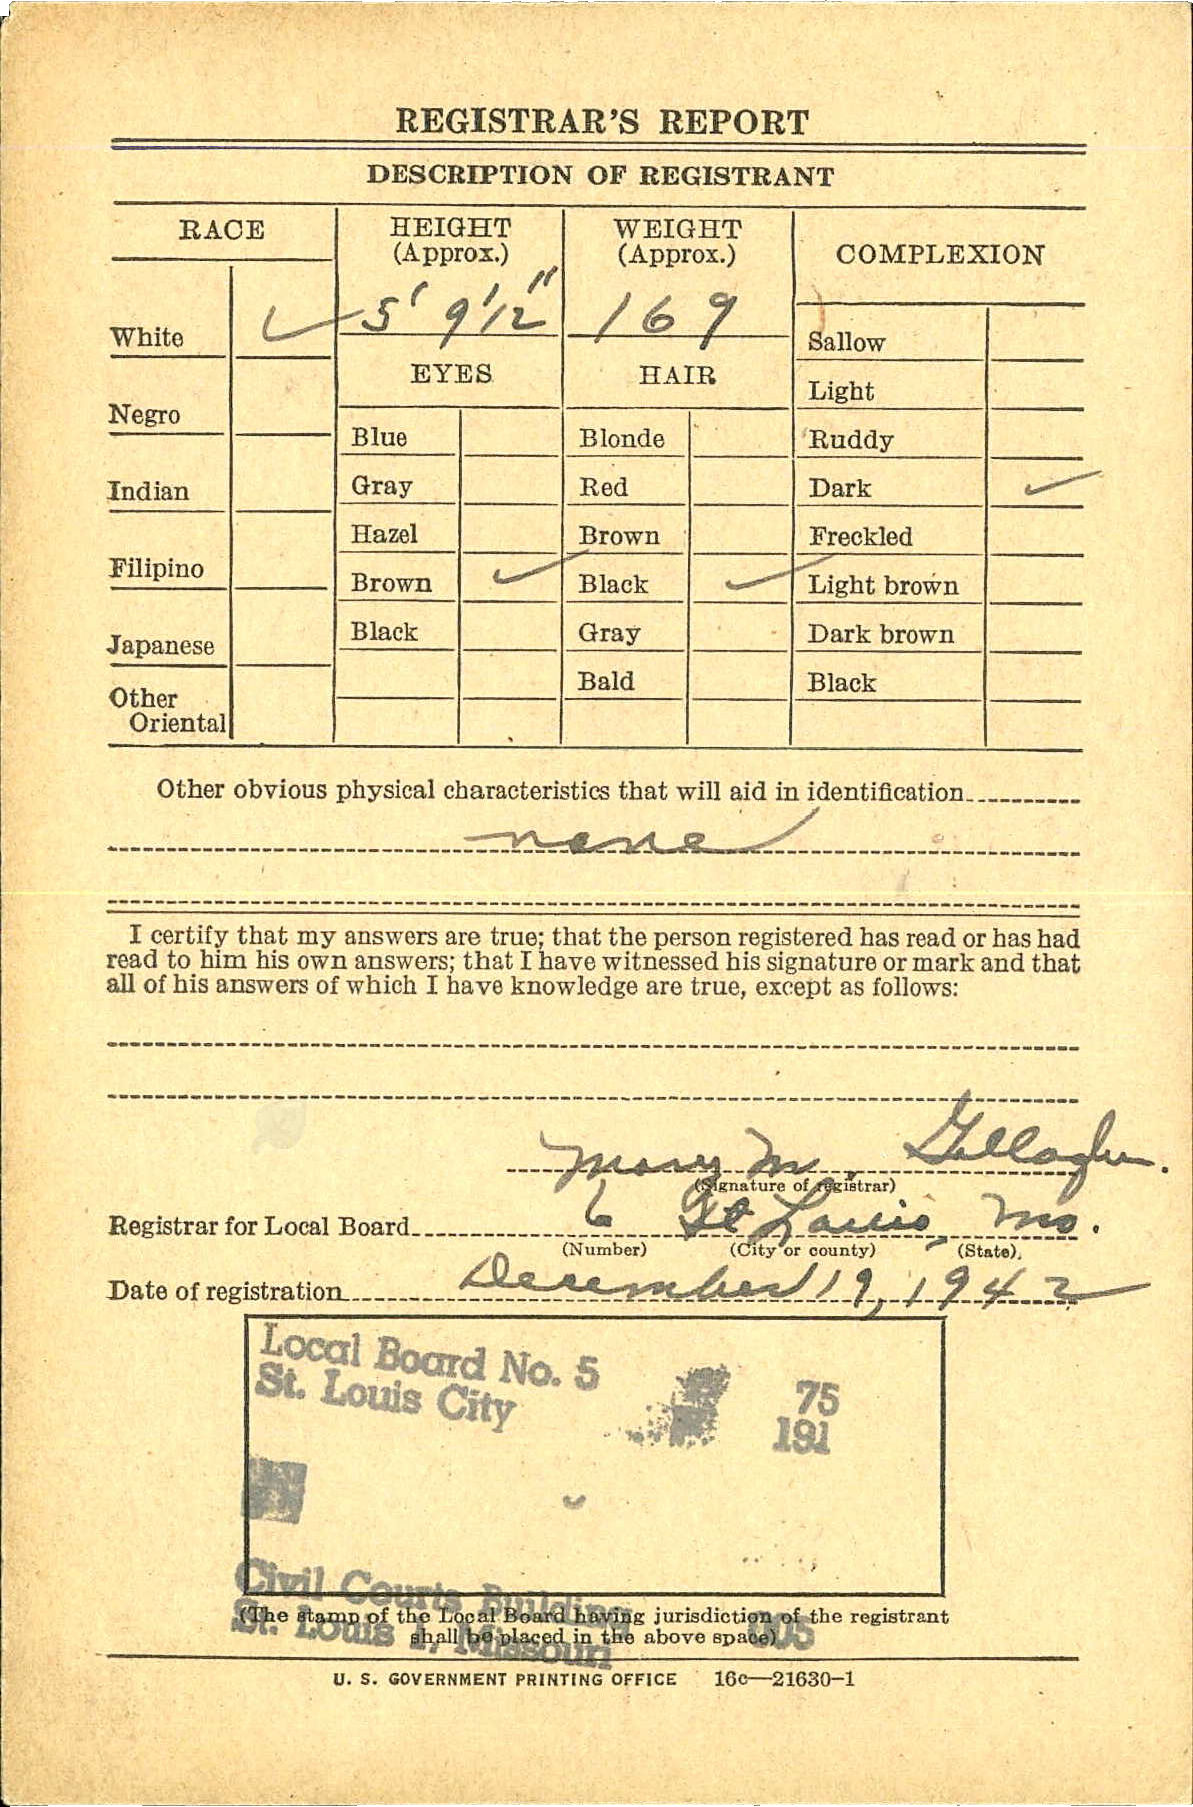 REGISTRAR'S REPORT
DESCRIPTION OF REGISTRANT
RACE
HEIGHT
(Approx.)
WEIGHT
(Approx.)
COMPLEXION
5' 9 1/2"
169
White ✓
Negro
Indian
Filipino
Japanese
Other
Oriental
EYES
Blue
Gray
Hazel
Brown ✓
Black
HAIR
Blonde
Red
Brown
Black ✓
Gray
Bald
Sallow
Light
Ruddy
Dark ✓
Freckled
Light brown
Dark brown
Black
Other obvious physical characteristics that will aid in identification
none
I certify that my answers are true; that the person registered has read or has had
read to him his own answers; that I have witnessed his signature or mark and that
all of his answers of which I have knowledge are true, except as follows:
Mary M. Gallagher
(Signature of registrar)
Registrar for Local Board 6 St Louis, Mo.
(Number) (City or county) (State)
Date of registration December 19, 1942
Local Board No. 5 75
St. Louis City 191
Civil Courts Building
St. Louis 1, Missouri 005
(The stamp of the Local Board having jurisdiction of the registrant
shall be placed in the above space)
U. S. GOVERNMENT PRINTING OFFICE 16c—21630-1